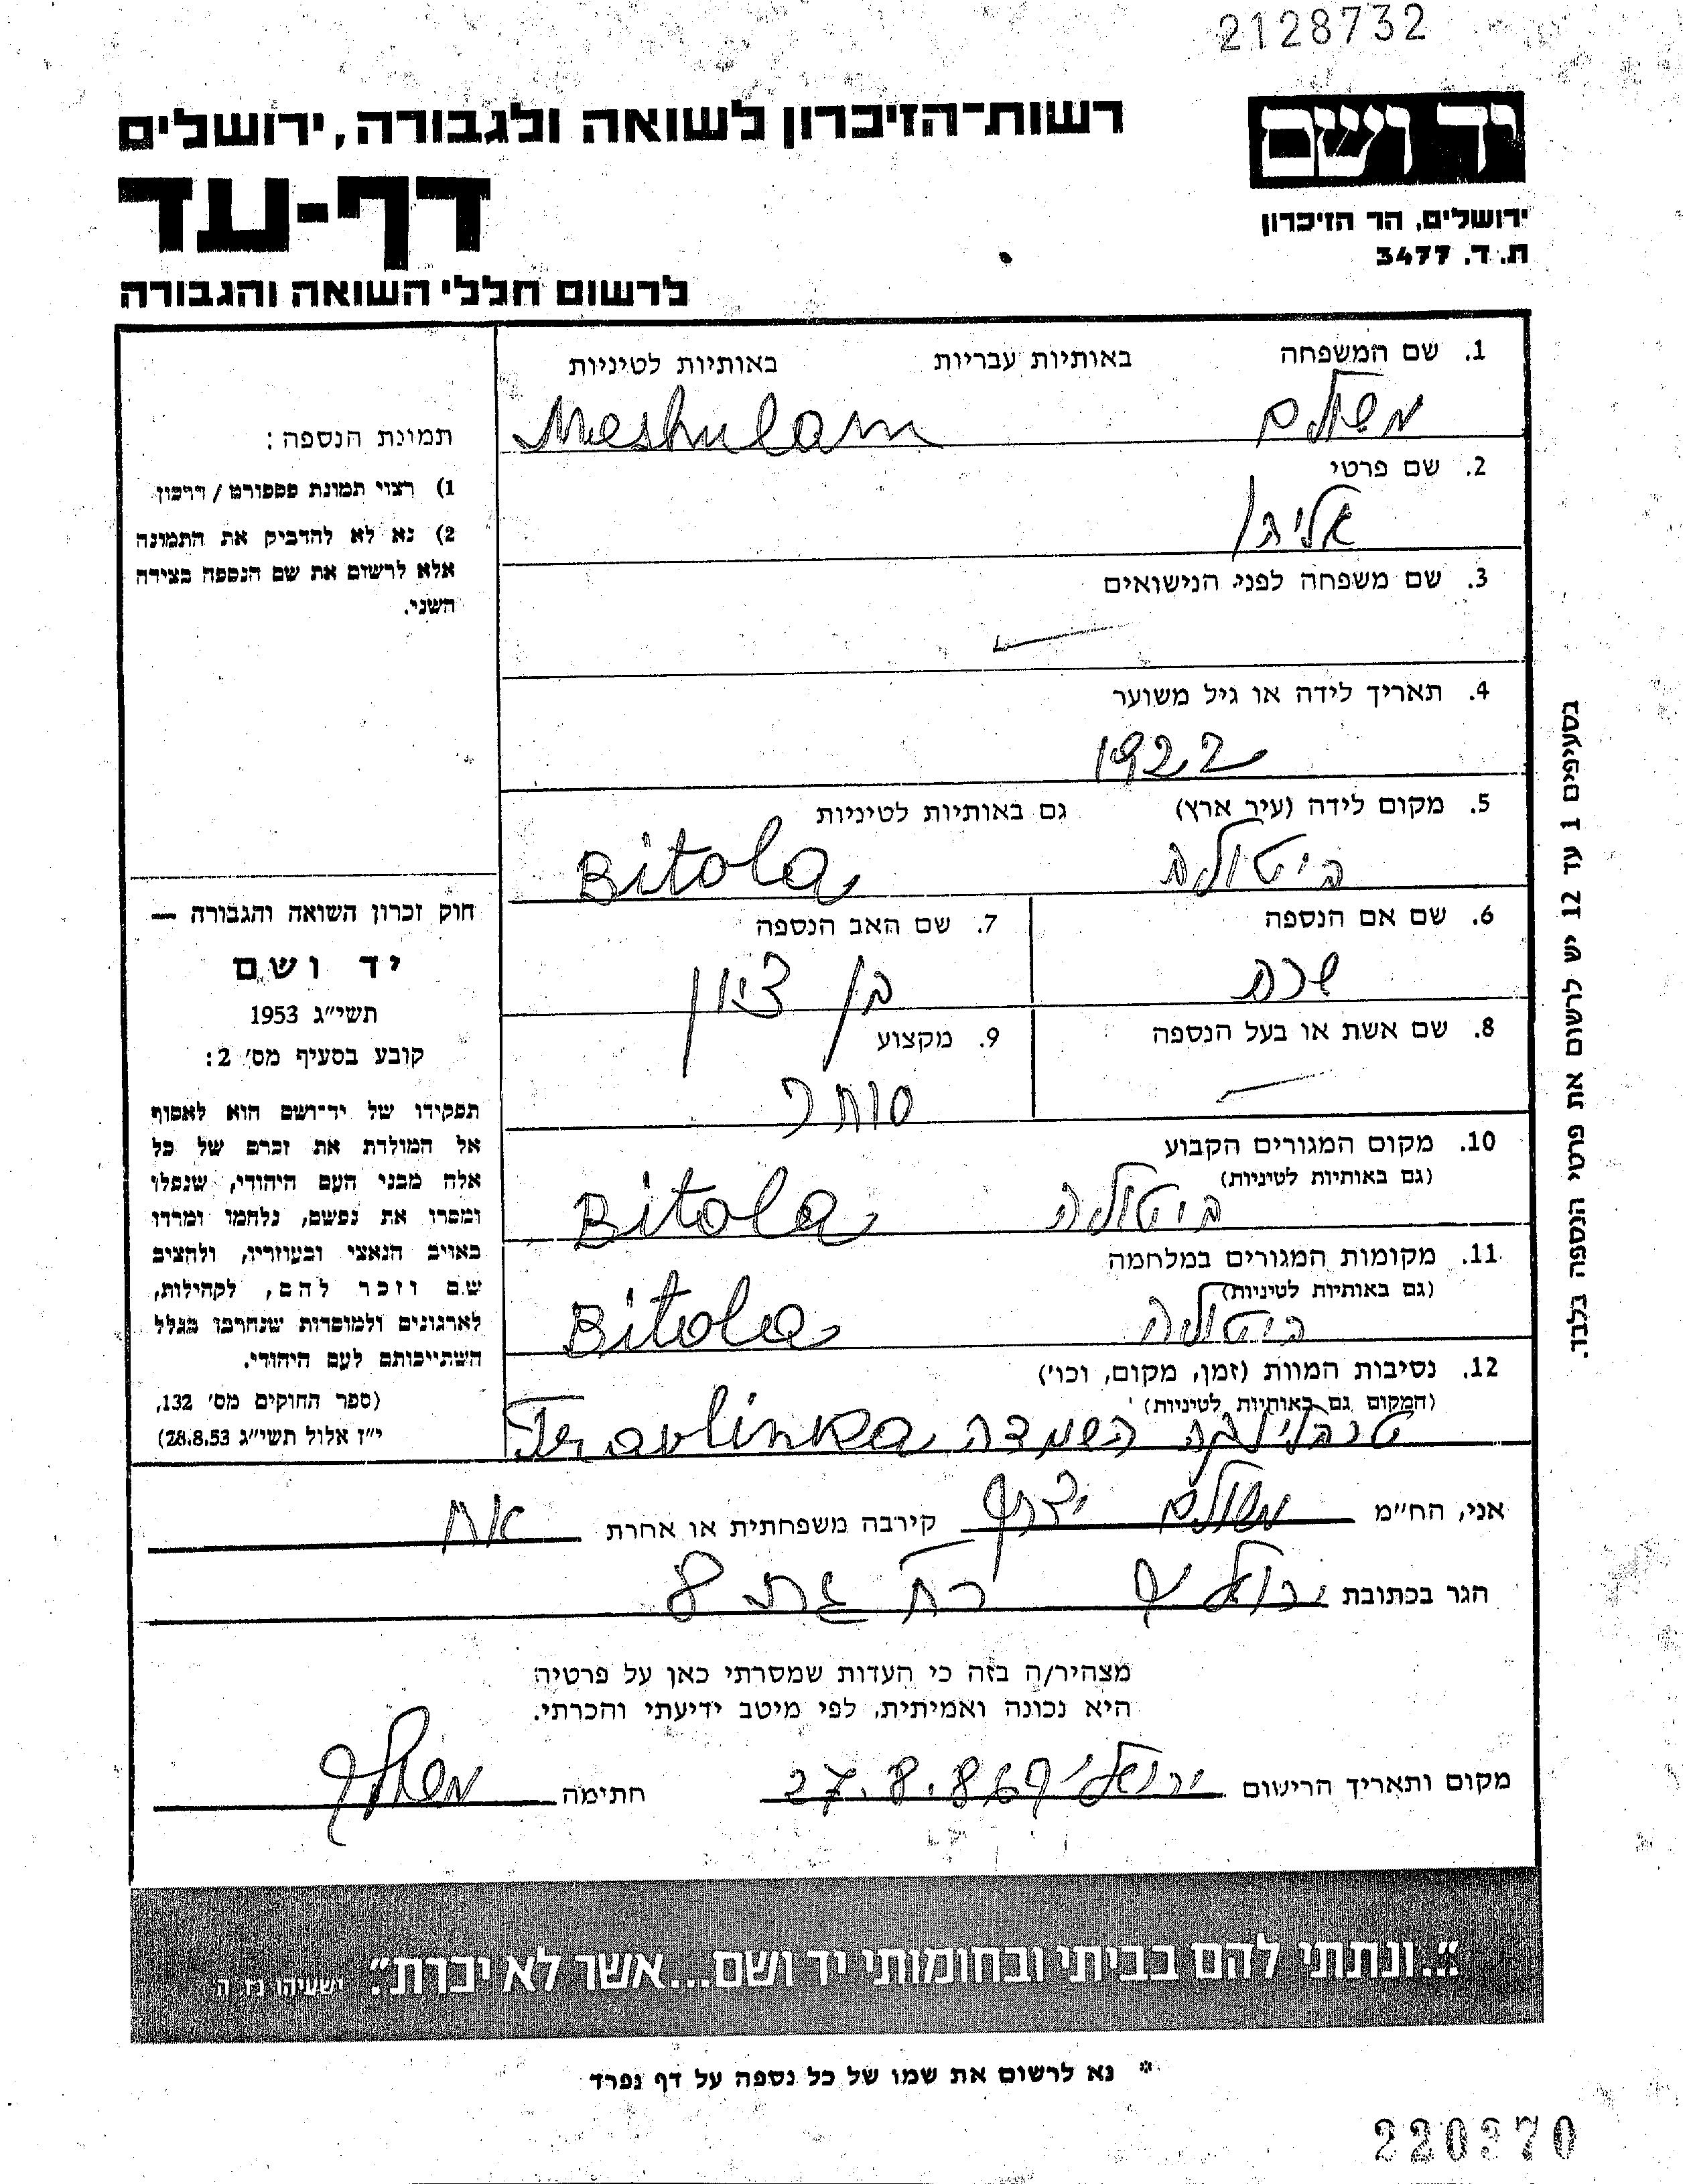 2128732
רשות־הזיכרון לשואה ולגבורה, ירושלים
יד ושם
דף-עד
ירושלים, הר הזיכרון
ת. ד. 3477
לרשום חללי השואה והגבורה
1. שם המשפחה באותיות עבריות באותיות לטיניות
משולם Meshulam
2. שם פרטי
אליהו
3. שם משפחה לפני הנישואים
4. תאריך לידה או גיל משוער
1922
5. מקום לידה (עיר ארץ) גם באותיות לטיניות
ביטולה Bitola
6. שם אם הנספה 7. שם האב הנספה
שרה בן ציון
8. שם אשת או בעל הנספה 9. מקצוע
סוחר
10. מקום המגורים הקבוע
(גם באותיות לטיניות)
ביטולה Bitola
11. מקומות המגורים במלחמה
(גם באותיות לטיניות)
ביטולה Bitola
12. נסיבות המוות (זמן, מקום, וכו')
(המקום גם באותיות לטיניות)
טרבלינקה השמדה Travlinka
תמונת הנספה:
1) רצוי תמונת פספורט / דרכון
2) נא לא להדביק את התמונה
אלא לרשום את שם הנספה בצידה
השני.
חוק זכרון השואה והגבורה —
יד ושם
תשי״ג 1953
קובע בסעיף מס׳ 2:
תפקידו של יד־ושם הוא לאסוף
אל המולדת את זכרם של כל
אלה מבני העם היהודי, שנפלו
ומסרו את נפשם, נלחמו ומרדו
באויב הנאצי ובעוזריו, ולהציב
שם וזכר להם, לקהילות,
לארגונים ולמוסדות שנחרבו בגלל
השתייכותם לעם היהודי.
(ספר החוקים מס׳ 132,
י״ז אלול תשי״ג 28.8.53)
בסעיפים 1 עד 12 יש לרשום את פרטי הנספה בלבד.
אני, הח״מ משולם קירבה משפחתית או אחרת אח
הגר בכתובת רח גת 8
מצהיר/ה בזה כי העדות שמסרתי כאן על פרטיה
היא נכונה ואמיתית, לפי מיטב ידיעתי והכרתי.
מקום ותאריך הרישום 27.8. חתימה משולם
״...ונתתי להם בביתי ובחומותי יד ושם...אשר לא יכרת״. ישעיהו נו, ה
* נא לרשום את שמו של כל נספה על דף נפרד
220370